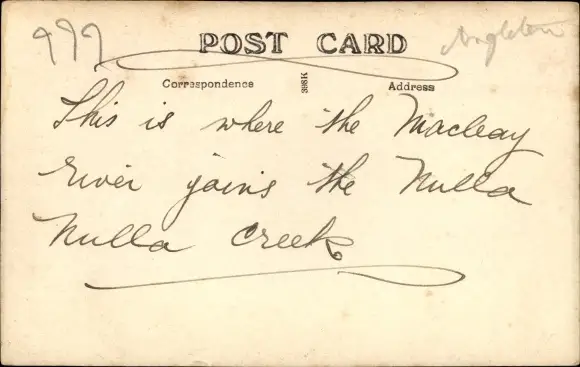 999
POST CARD
Correspondence
Address
This is where the Macleay
river joins the Nulla
Nulla Creek